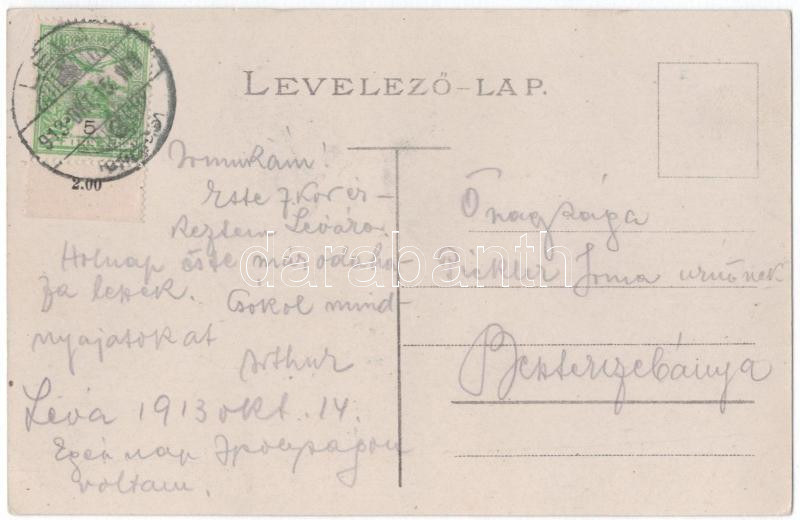 LEVELEZŐ-LAP.
5
2.00
Este 7 kor ér-
keztem Lévára.
Holnap este már odaha-
za leszek. Csokol mind-
nyajatokat
Arthur
Léva 1913 okt. 14.
Egész nap Ipolyságon
voltam.
Őnagysága
Pickler Irma urnőnek
Beszterczebánya
darabanth